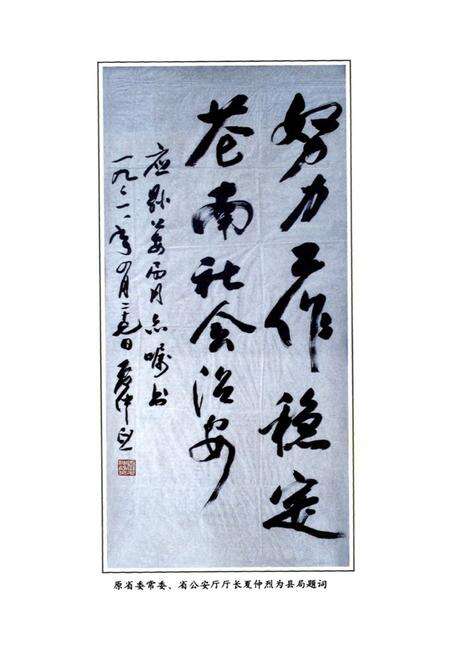 努力工作稳定
苍南社会治安
应县公安局同志嘱书
一九九一年四月二十九日 夏仲烈
原省委常委、省公安厅厅长夏仲烈为县局题词